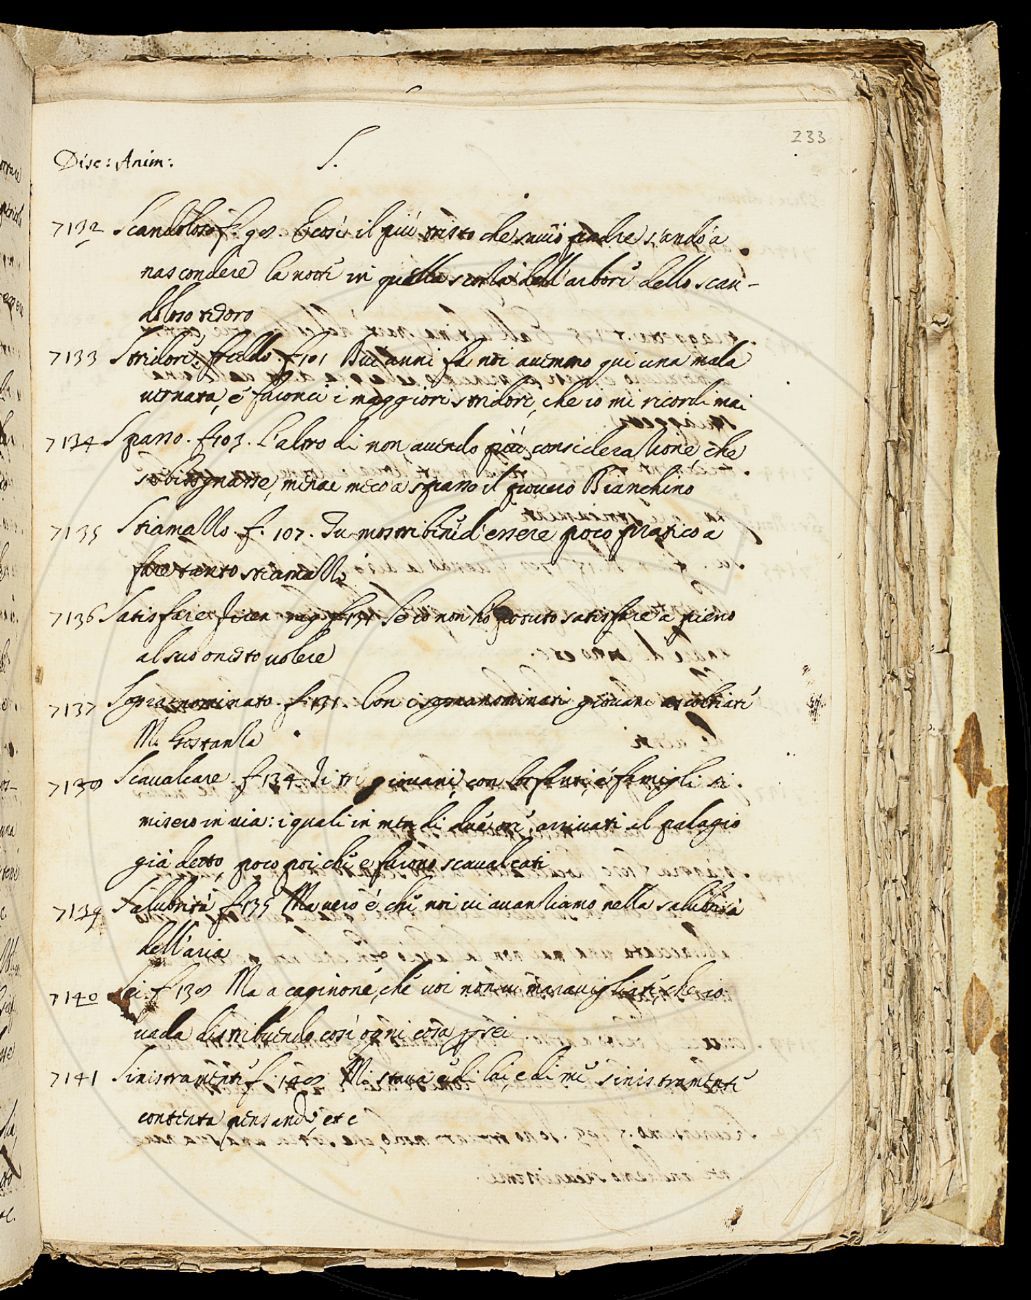 233
Disc: Anim:
S.
7132 Scandoloso f. 98. E così il più tristo che suoo padre s'andò a
nascondere la notte in quella scorta dell'arbore dello scan-
doloso tidoro
7133 Stridore, freddo f. 101 Due anni fà noi auemmo qui una mala
uernata, e feciònci i maggiori stridori, che io mi ricordi mai
7134 Spasso. f. 103. L'altro dì non auendo più considerazione che
si bisognasse, menai meco a spasso il giouero Bianchino
7135 Stiamazzo f. 107. Tu mostri bene d'essere poco pratico a
fare tanto stiamazzo
7136 Satisfare f. 131 Se io non ho potuto satisfare à pieno
al suo onesto uolere
7137 Sopracnominato. f. 131. Con i sopranominati giouani
M. Gostanza
7138 Scaualcare f. 134. I tre giouani con le fanti, e famigli si
misero in uia: i quali in men di due ore, arriuati al palagio
già detto, poco poi che e furono scaualcati
7139 Salubrità f. 135 Ma uero è che noi ui auanziamo nella salubrità
dell'aria
7140 Sei. f. 138 Ma a cagione, che uoi non ui marauigliate che io
uada distribuendo così ogni cosa per sei
7141 Sinistramente f. 140 Mi staua e di lui e di me sinistramente
contenta pensando etc